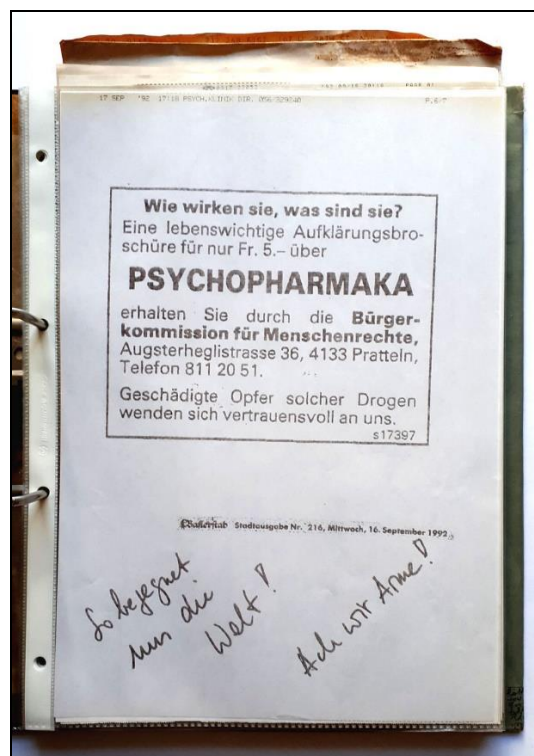 17 SEP '92 17:18 PSYCH.KLINIK DIR. 056/329240 P.6/7
Wie wirken sie, was sind sie?
Eine lebenswichtige Aufklärungsbro-
schüre für nur Fr. 5.– über
PSYCHOPHARMAKA
erhalten Sie durch die Bürger-
kommission für Menschenrechte,
Augsterheglistrasse 36, 4133 Pratteln,
Telefon 811 20 51.
Geschädigte Opfer solcher Drogen
wenden sich vertrauensvoll an uns.
s17397
Baslerstab Stadtausgabe Nr. 216, Mittwoch, 16. September 1992
So begegnet
uns die
Welt!
Ach wir Arme!